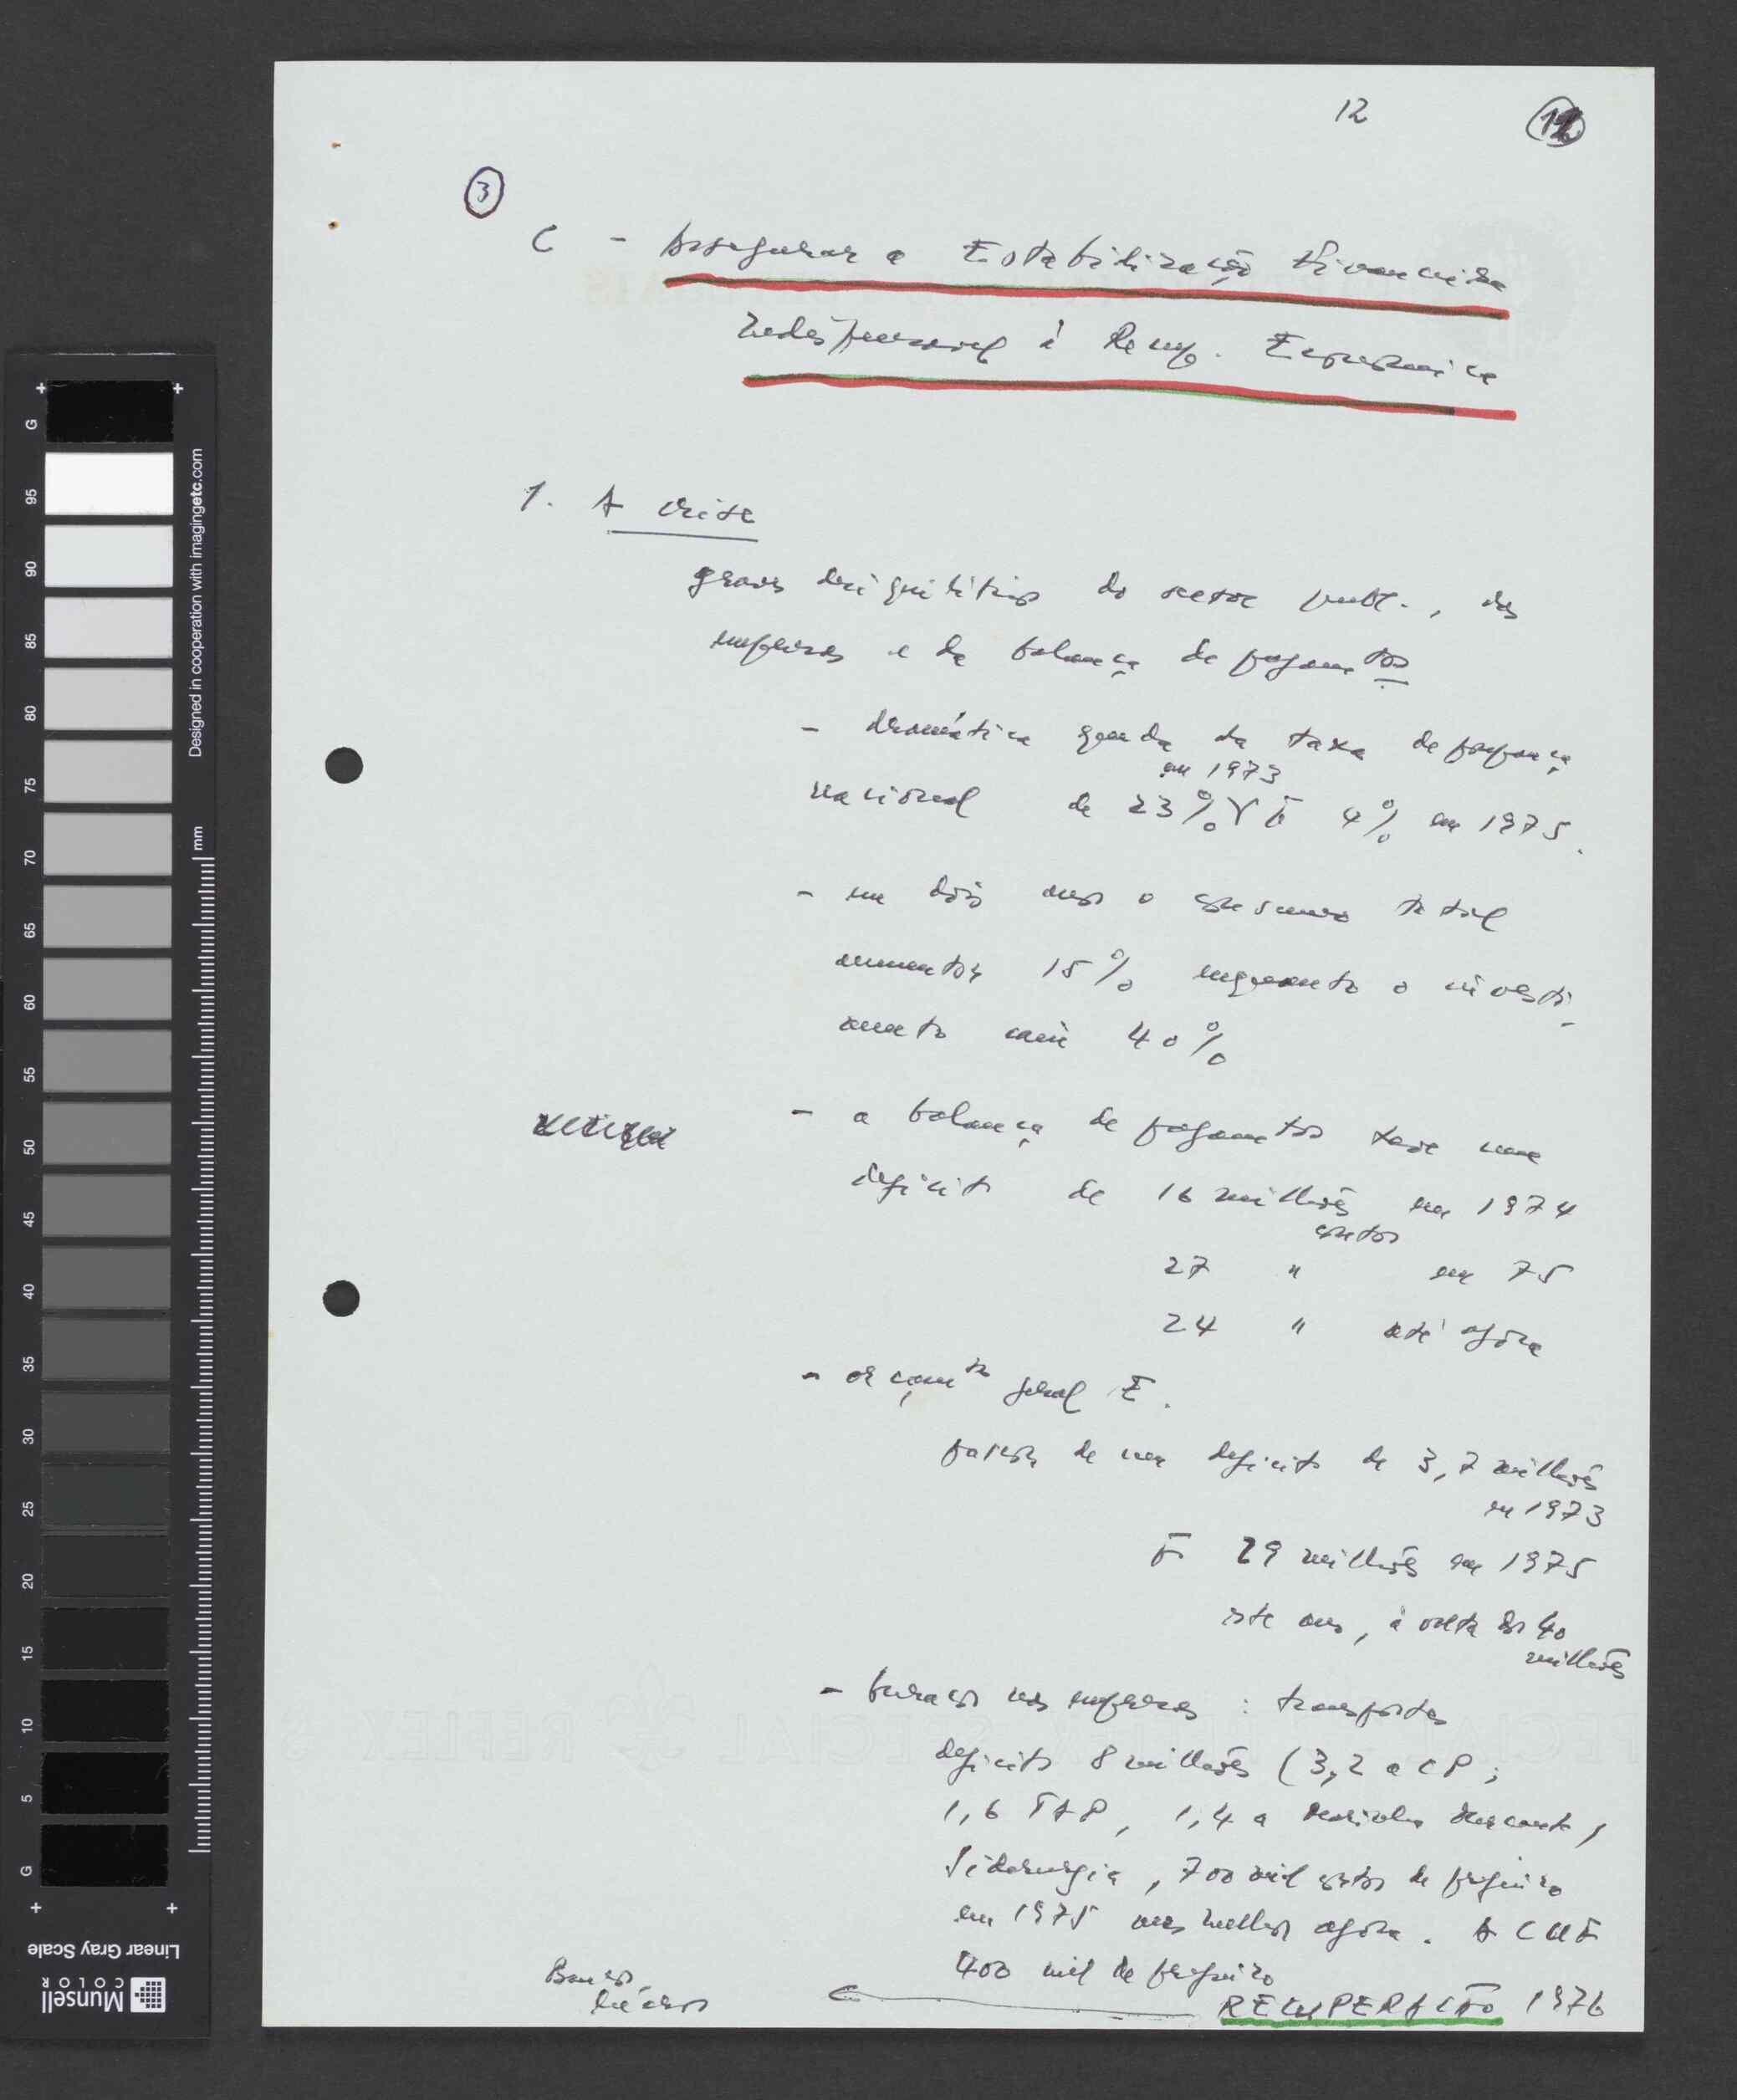 12
3
C - Assegurar a Estabilização Financeira
Indispensável à Recup. Económica
1. A crise
graves desiquilibrios do sector publ., das
empresas e da balança de pagamentos
- dramática queda da taxa de poupança
em 1973
nacional de 23% p/ 4% em 1975.
- em dois anos o consumo total
aumentou 15% enquanto o investi
mento caiu 40%
- a balança de pagamentos teve um
deficit de 16 milhões em 1974
contos
27 " em 75
24 " até agora
- orçamto geral E.
passou de um deficit de 3,7 milhões
em 1973
p/ 29 milhões em 1975
este ano, à volta dos 40
milhões
- buracos nas empresas : transportes
deficit 8 milhões (3,2 a CP ;
1,6 TAP, 1,4 a Marinha Mercante,
Siderurgia, 700 mil contos de prejuizo
em 1975 mas melhor agora. A CUF
400 mil de prejuizo
RECUPERAÇÃO 1976
Designed in cooperation with imagingetc.com
mm
G
95
90
85
80
75
70
65
60
55
50
45
40
35
30
25
20
15
10
5
G
Linear Gray Scale
Munsell
COLOR